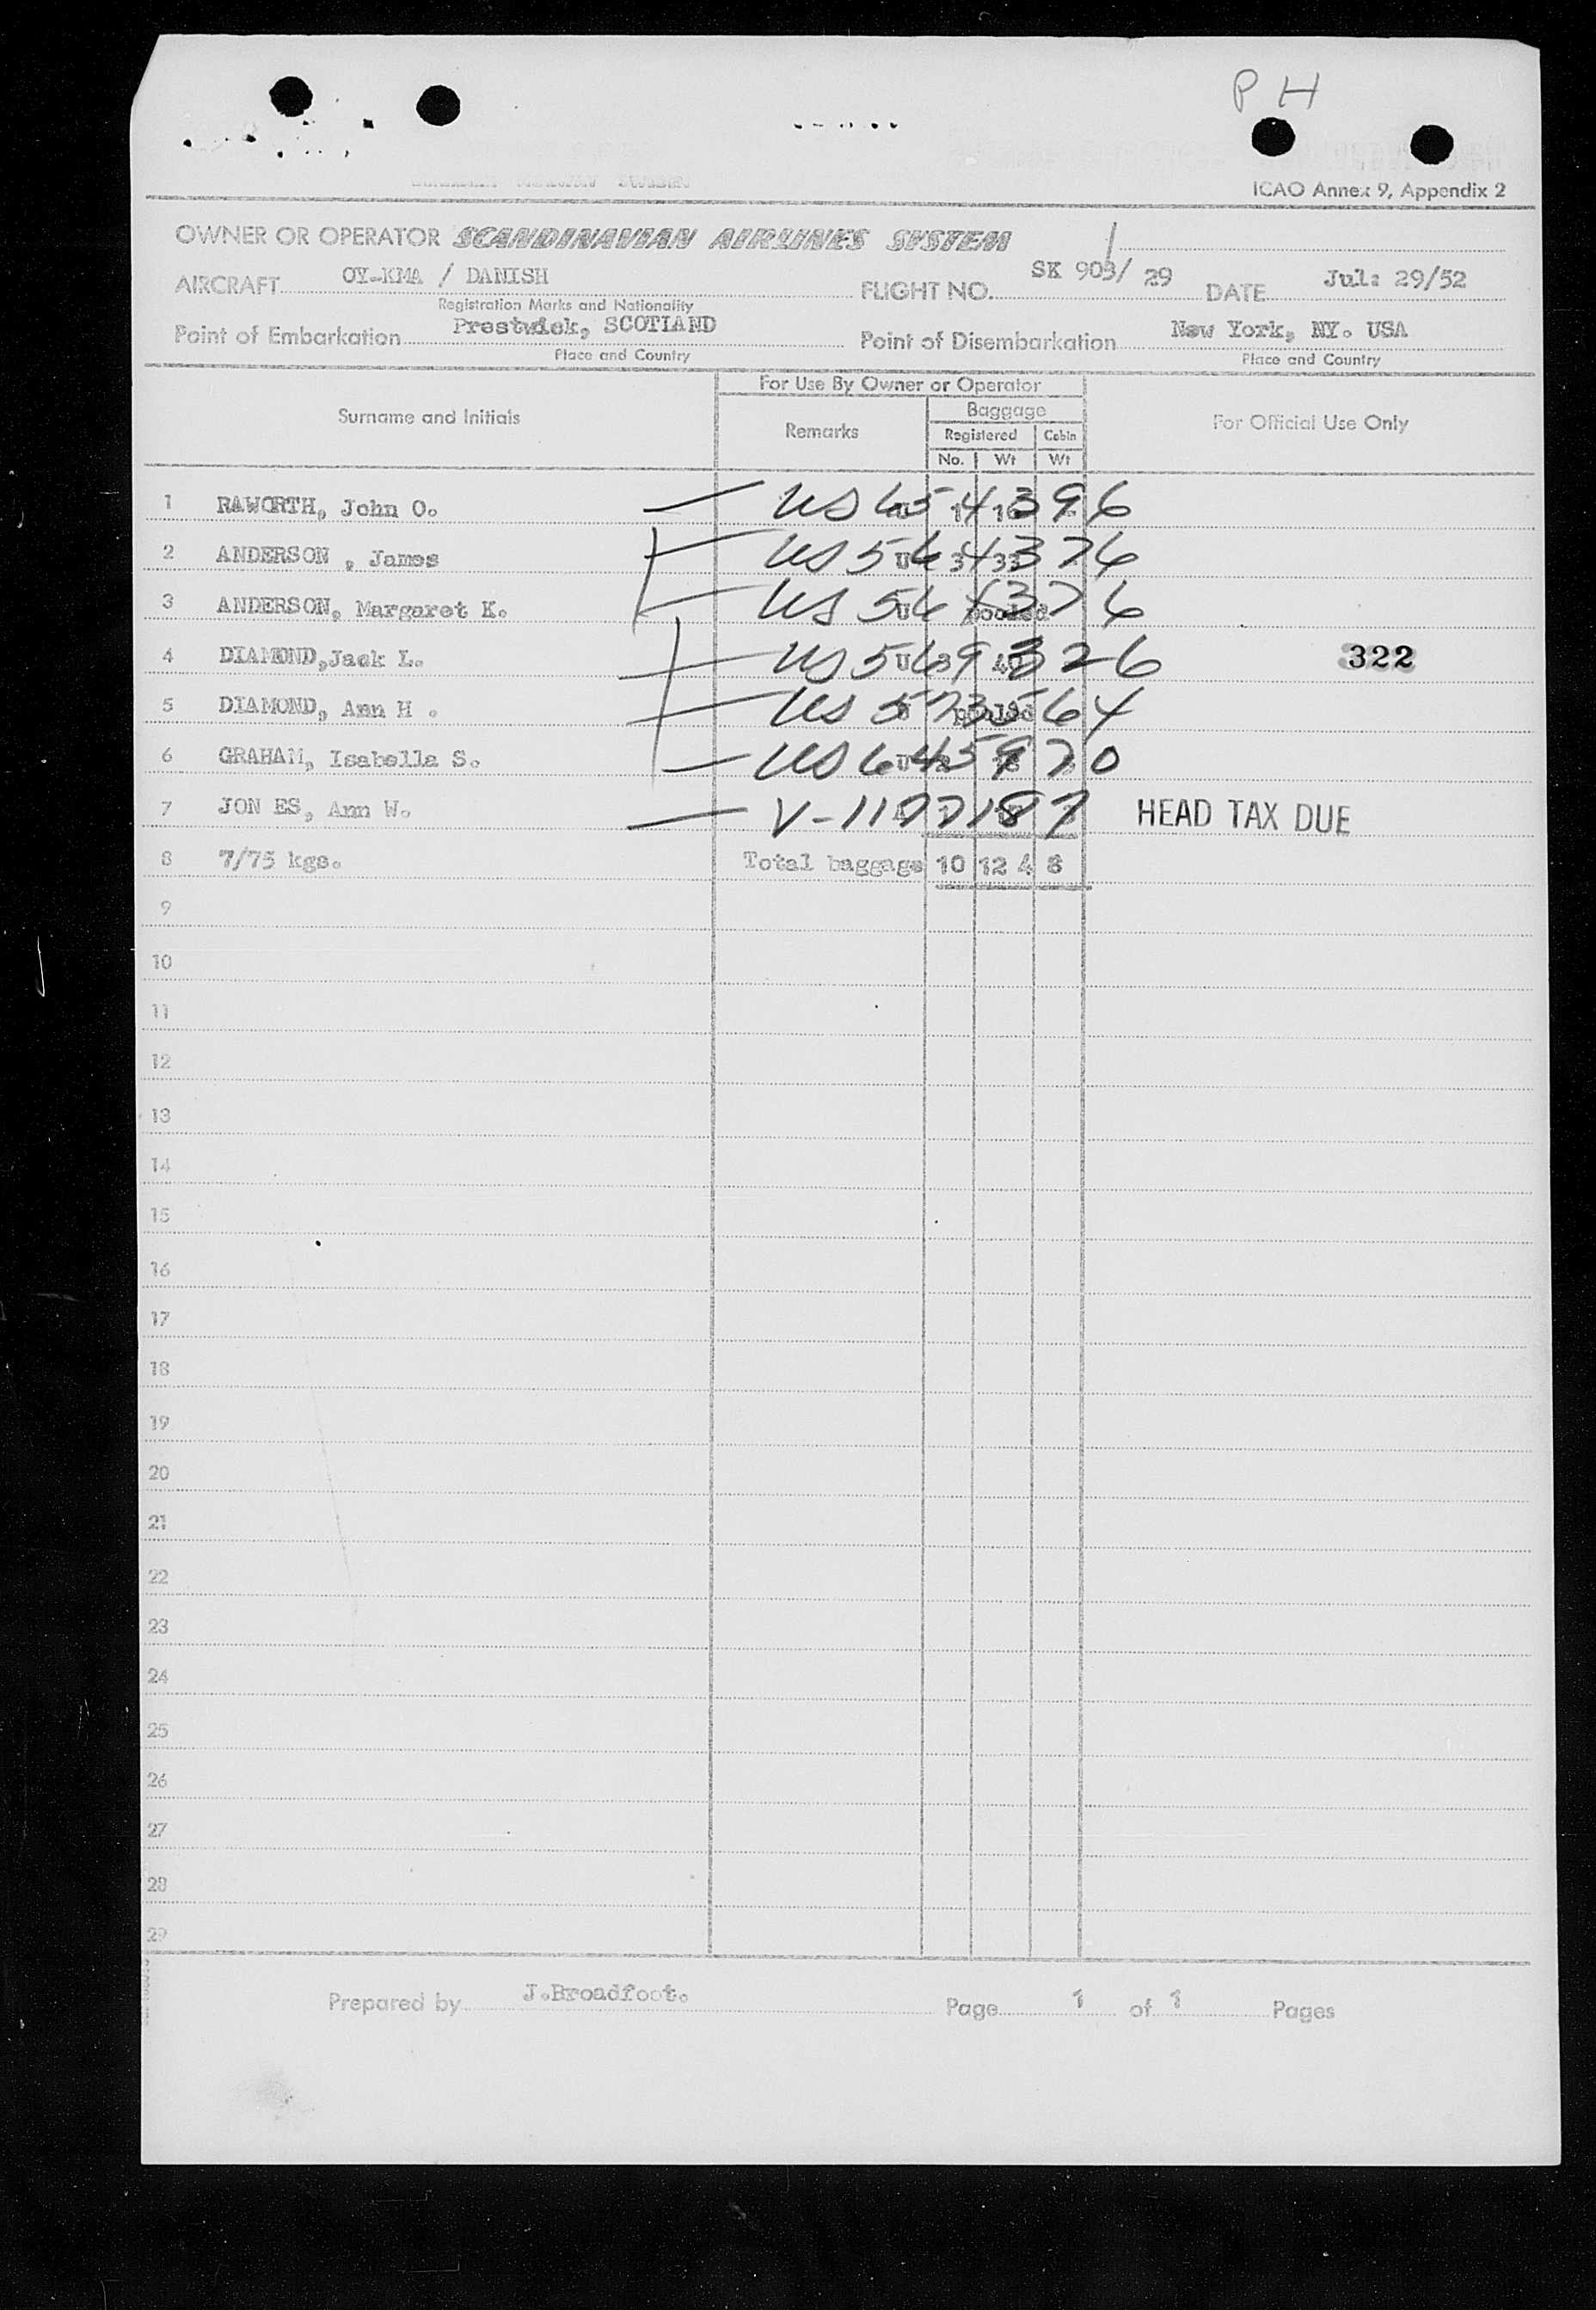 P H
ICAO Annex 9, Appendix 2
OWNER OR OPERATOR SCANDINAVIAN AIRLINES SYSTEM
AIRCRAFT OY-KMA / DANISH FLIGHT NO. SK 903/ 29 DATE Jul: 29/52
Registration Marks and Nationality
Point of Embarkation Prestwick, SCOTLAND Point of Disembarkation New York, NY. USA
Place and Country Place and Country
For Use By Owner or Operator
Surname and Initials Remarks Baggage For Official Use Only
Registered Cabin
No. Wt Wt
1 RAWORTH, John O. US 654396
2 ANDERSON , James US 564376
3 ANDERSON, Margaret K. US 564376
4 DIAMOND,Jack L. US 569326 322
5 DIAMOND, Ann H . US 573564
6 GRAHAM, Isabella S. US 645970
7 JON ES, Ann W. V-1177187 HEAD TAX DUE
8 7/75 kgs. Total baggage 10 12 4 8
9
10
11
12
13
14
15
16
17
18
19
20
21
22
23
24
25
26
27
28
29
Prepared by J.Broadfoot. Page 1 of 1 Pages